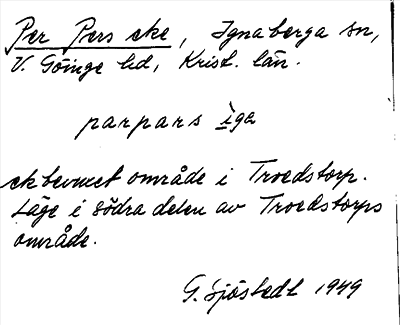 Per Pers eke, Ignaberga sn,
V. Göinge hd, Krist. län.
parpars ìga
ekbevuxet område i Troedstorp.
Läge i södra delen av Troedstorps
område.
G. Sjöstedt 1949